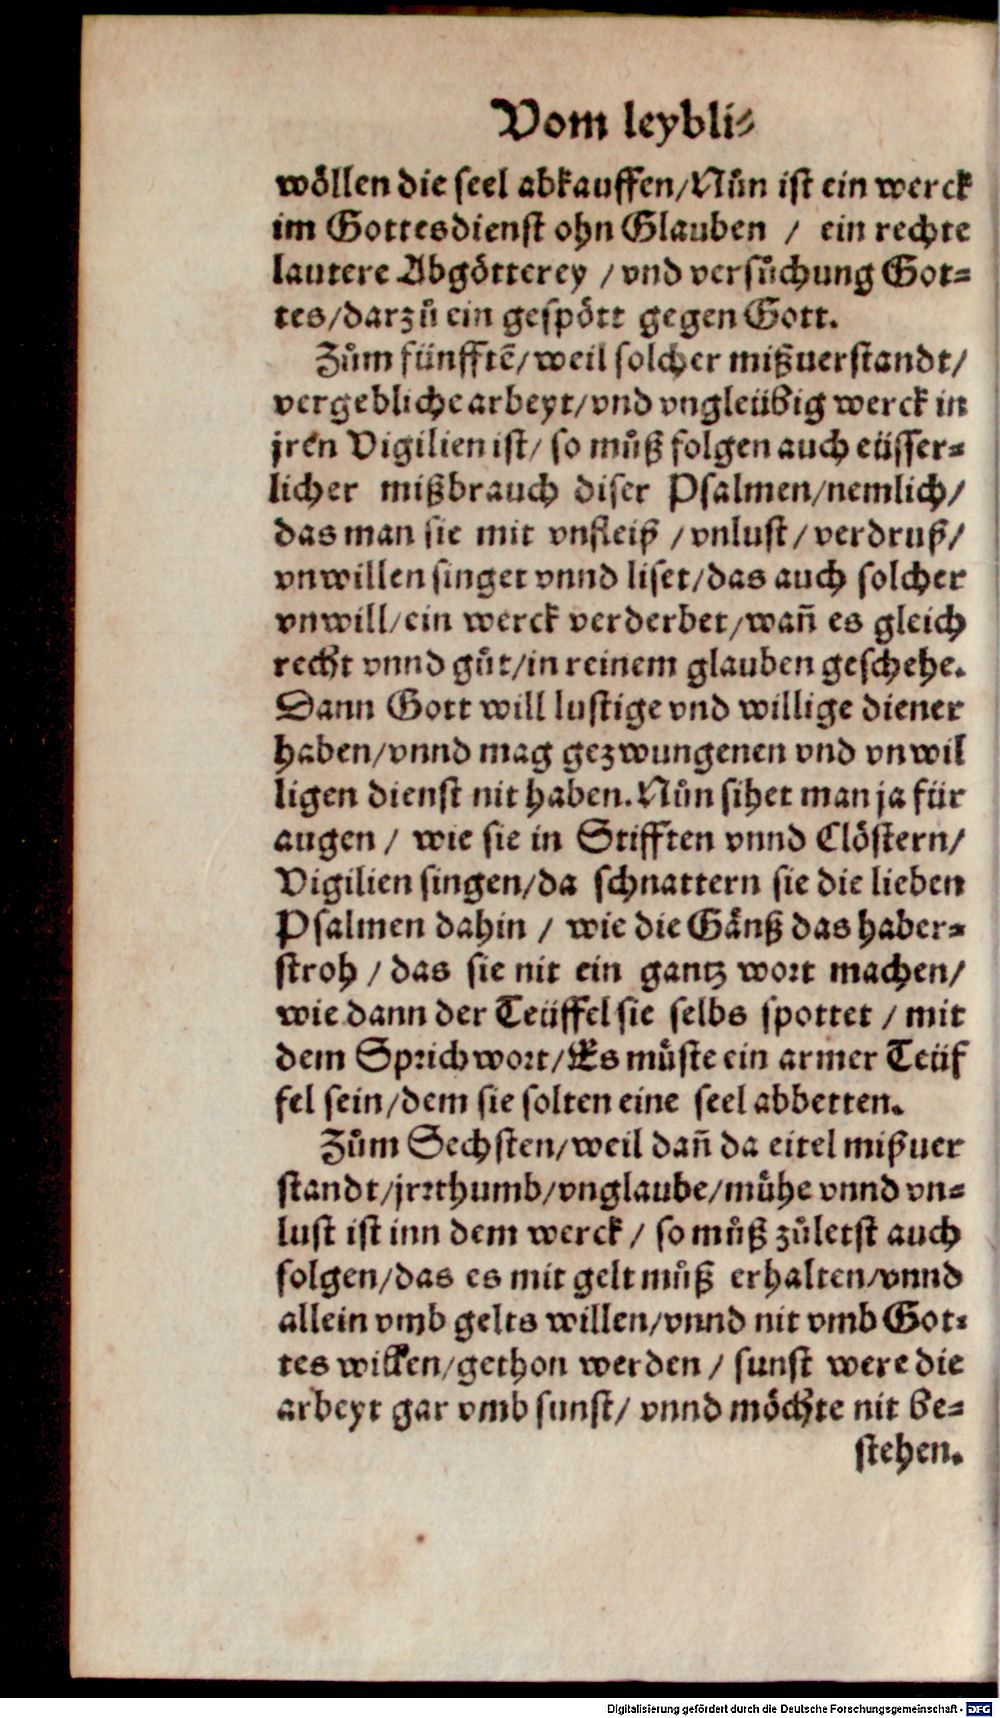 Vom leybli⸗
wöllen die seel abkauffen/Nůn ist ein werck
im Gottesdienst ohn Glauben / ein rechte
lautere Abgötterey / vnd versůchung Got⸗
tes/darzů ein gespött gegen Gott.
Zům fünfftē/weil solcher mißuerstandt/
vergebliche arbeyt/vnd vngleübig werck in
jren Vigilien ist/ so můß folgen auch eüsser⸗
licher mißbrauch diser Psalmen/nemlich/
das man sie mit vnfleiß / vnlust / verdruß/
vnwillen singet vnnd liset/das auch solcher
vnwill/ein werck verderbet/wañ es gleich
recht vnnd gůt/in reinem glauben geschehe.
Dann Gott will lustige vnd willige diener
haben/vnnd mag gezwungenen vnd vnwil
ligen dienst nit haben. Nůn sihet man ja für
augen / wie sie in Stifften vnnd Clöstern/
Vigilien singen/da schnattern sie die lieben
Psalmen dahin / wie die Gänß das haber⸗
stroh / das sie nit ein gantz wort machen/
wie dann der Teüffel sie selbs spottet / mit
dem Sprichwort/Es můste ein armer Teüf
fel sein/dem sie solten eine seel abbetten.
Zům Sechsten/weil dañ da eitel mißuer
standt/jrrthumb/vnglaube/mühe vnnd vn⸗
lust ist inn dem werck / so můß zůletst auch
folgen/das es mit gelt můß erhalten/vnnd
allein vmb gelts willen/vnnd nit vmb Got⸗
tes willen/gethon werden / sunst were die
arbeyt gar vmb sunst/ vnnd möchte nit be⸗
stehen.
Digitalisierung gefördert durch die Deutsche Forschungsgemeinschaft - DFG